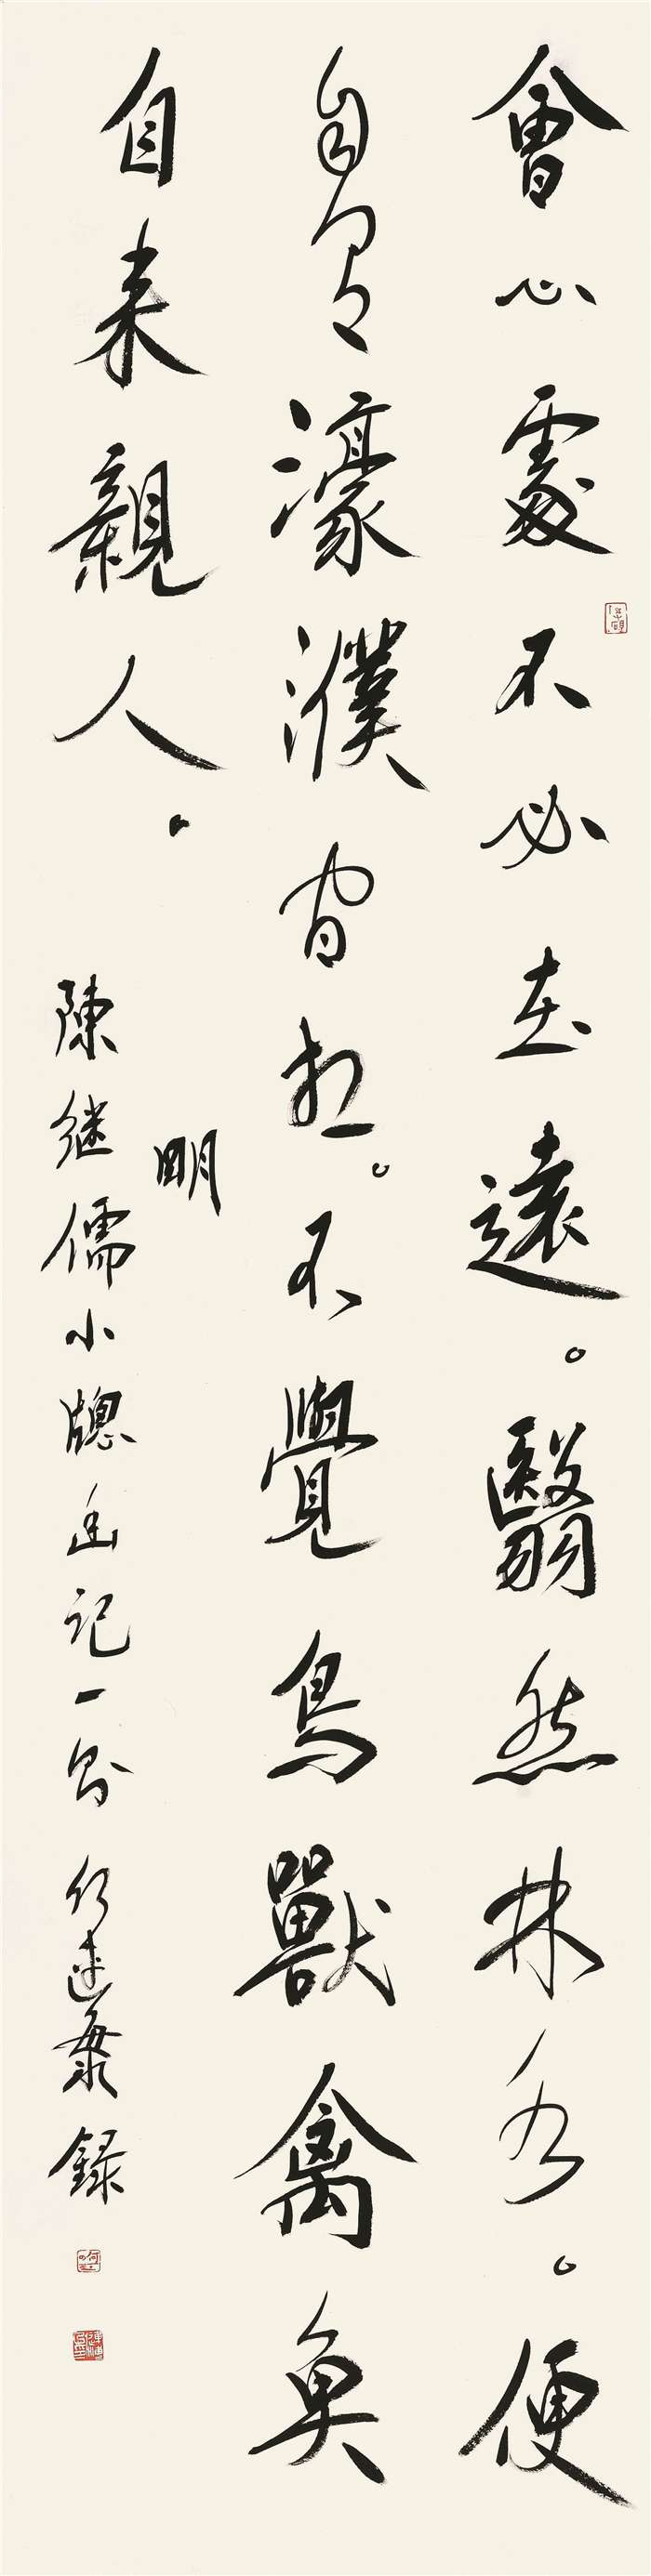 會心處不必在遠。翳然林水。便
自有濠濮间想。不覺鳥獸禽魚
自来親人。
明
陳继儒小牕幽记一则 錄